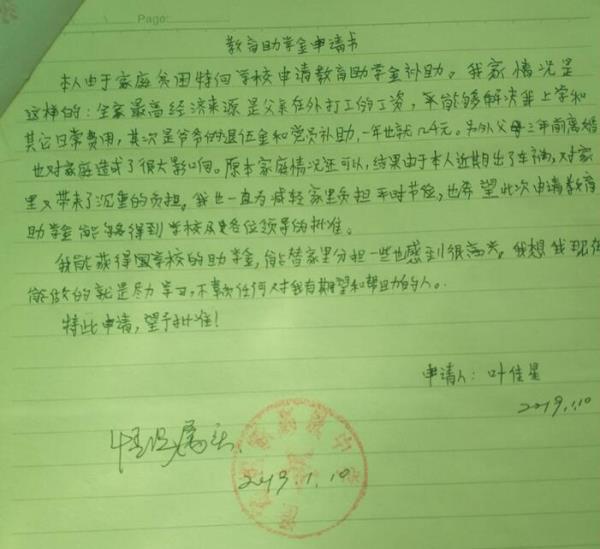 Page:
教育助学金申请书
本人由于家庭贫困特向学校申请教育助学金补助。我家情况是
这样的：全家最高经济来源是父亲在外打工的工资，能够解决我上学和
其它日常费用，其次是爷爷的退伍金和党员补助，一年也就元。另外父母三年前离婚
也对家庭造成了很大影响。原本家庭情况还可以，结果由于本人近期出了车祸，对家
里又带来了沉重的负担。我也一直为减轻家里负担平时节俭，也希望此次申请教育
助学金能够得到学校及各位领导的批准。
我能获得学校的助学金，能替家里分担一些也感到很高兴。我想我现在
能做的就是尽力学习，不辜负任何人对我有期望和帮助的人。
特此申请，望予批准！
申请人：叶佳星
2019.1.10
情况属实
2019.1.10